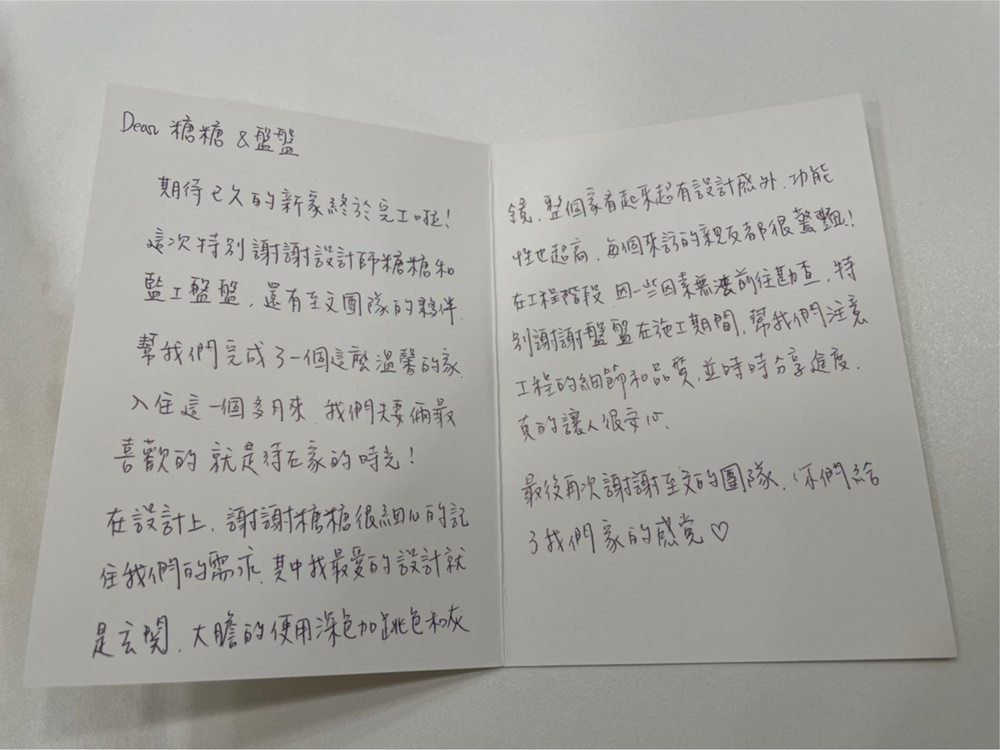 Dear 糖糖 & 盤盤
期待已久的新家終於完工啦!
這次特別謝謝設計師糖糖和
監工盤盤,還有至文團隊的夥伴
幫我們完成了一個這麼溫馨的家.
入住這一個多月來,我們夫妻倆最
喜歡的 就是待在家的時光!
在設計上,謝謝糖糖很細心的記
住我們的需求,其中我最愛的設計就
是玄關,大膽的使用深色加跳色和灰
鏡,整個家看起來超有設計感外,功能
性也超高,每個來訪的親友都很驚豔!
在工程階段,因一些因素無法前往勘查,特
別謝謝盤盤在施工期間,幫我們注意
工程的細節和品質,並時時分享進度,
真的讓人很安心.
最後再次謝謝至文的團隊,你們給
了我們家的感覺♡